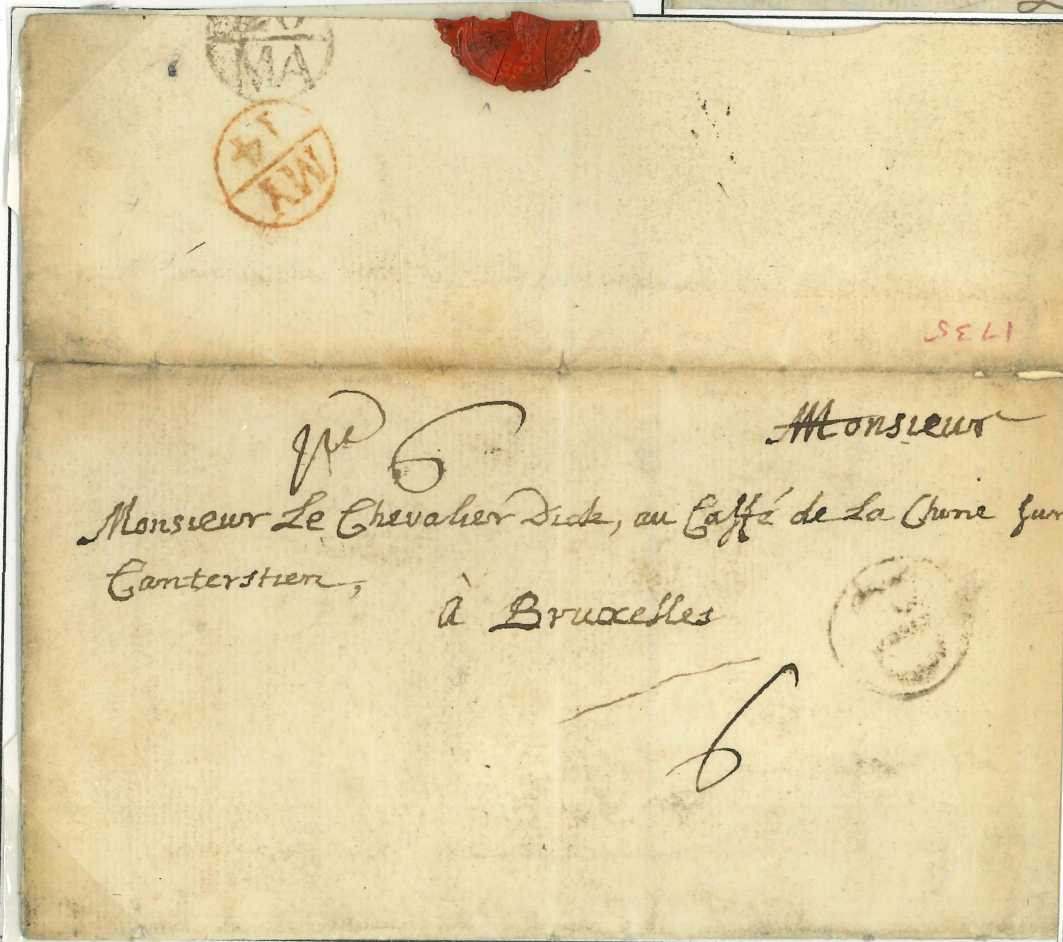 MA
14
MY
1735
pd 6
Monsieur
Monsieur Le Chevalier Dick, au Caffé de La Chine sur
Canterstien,
à Bruxelles
6